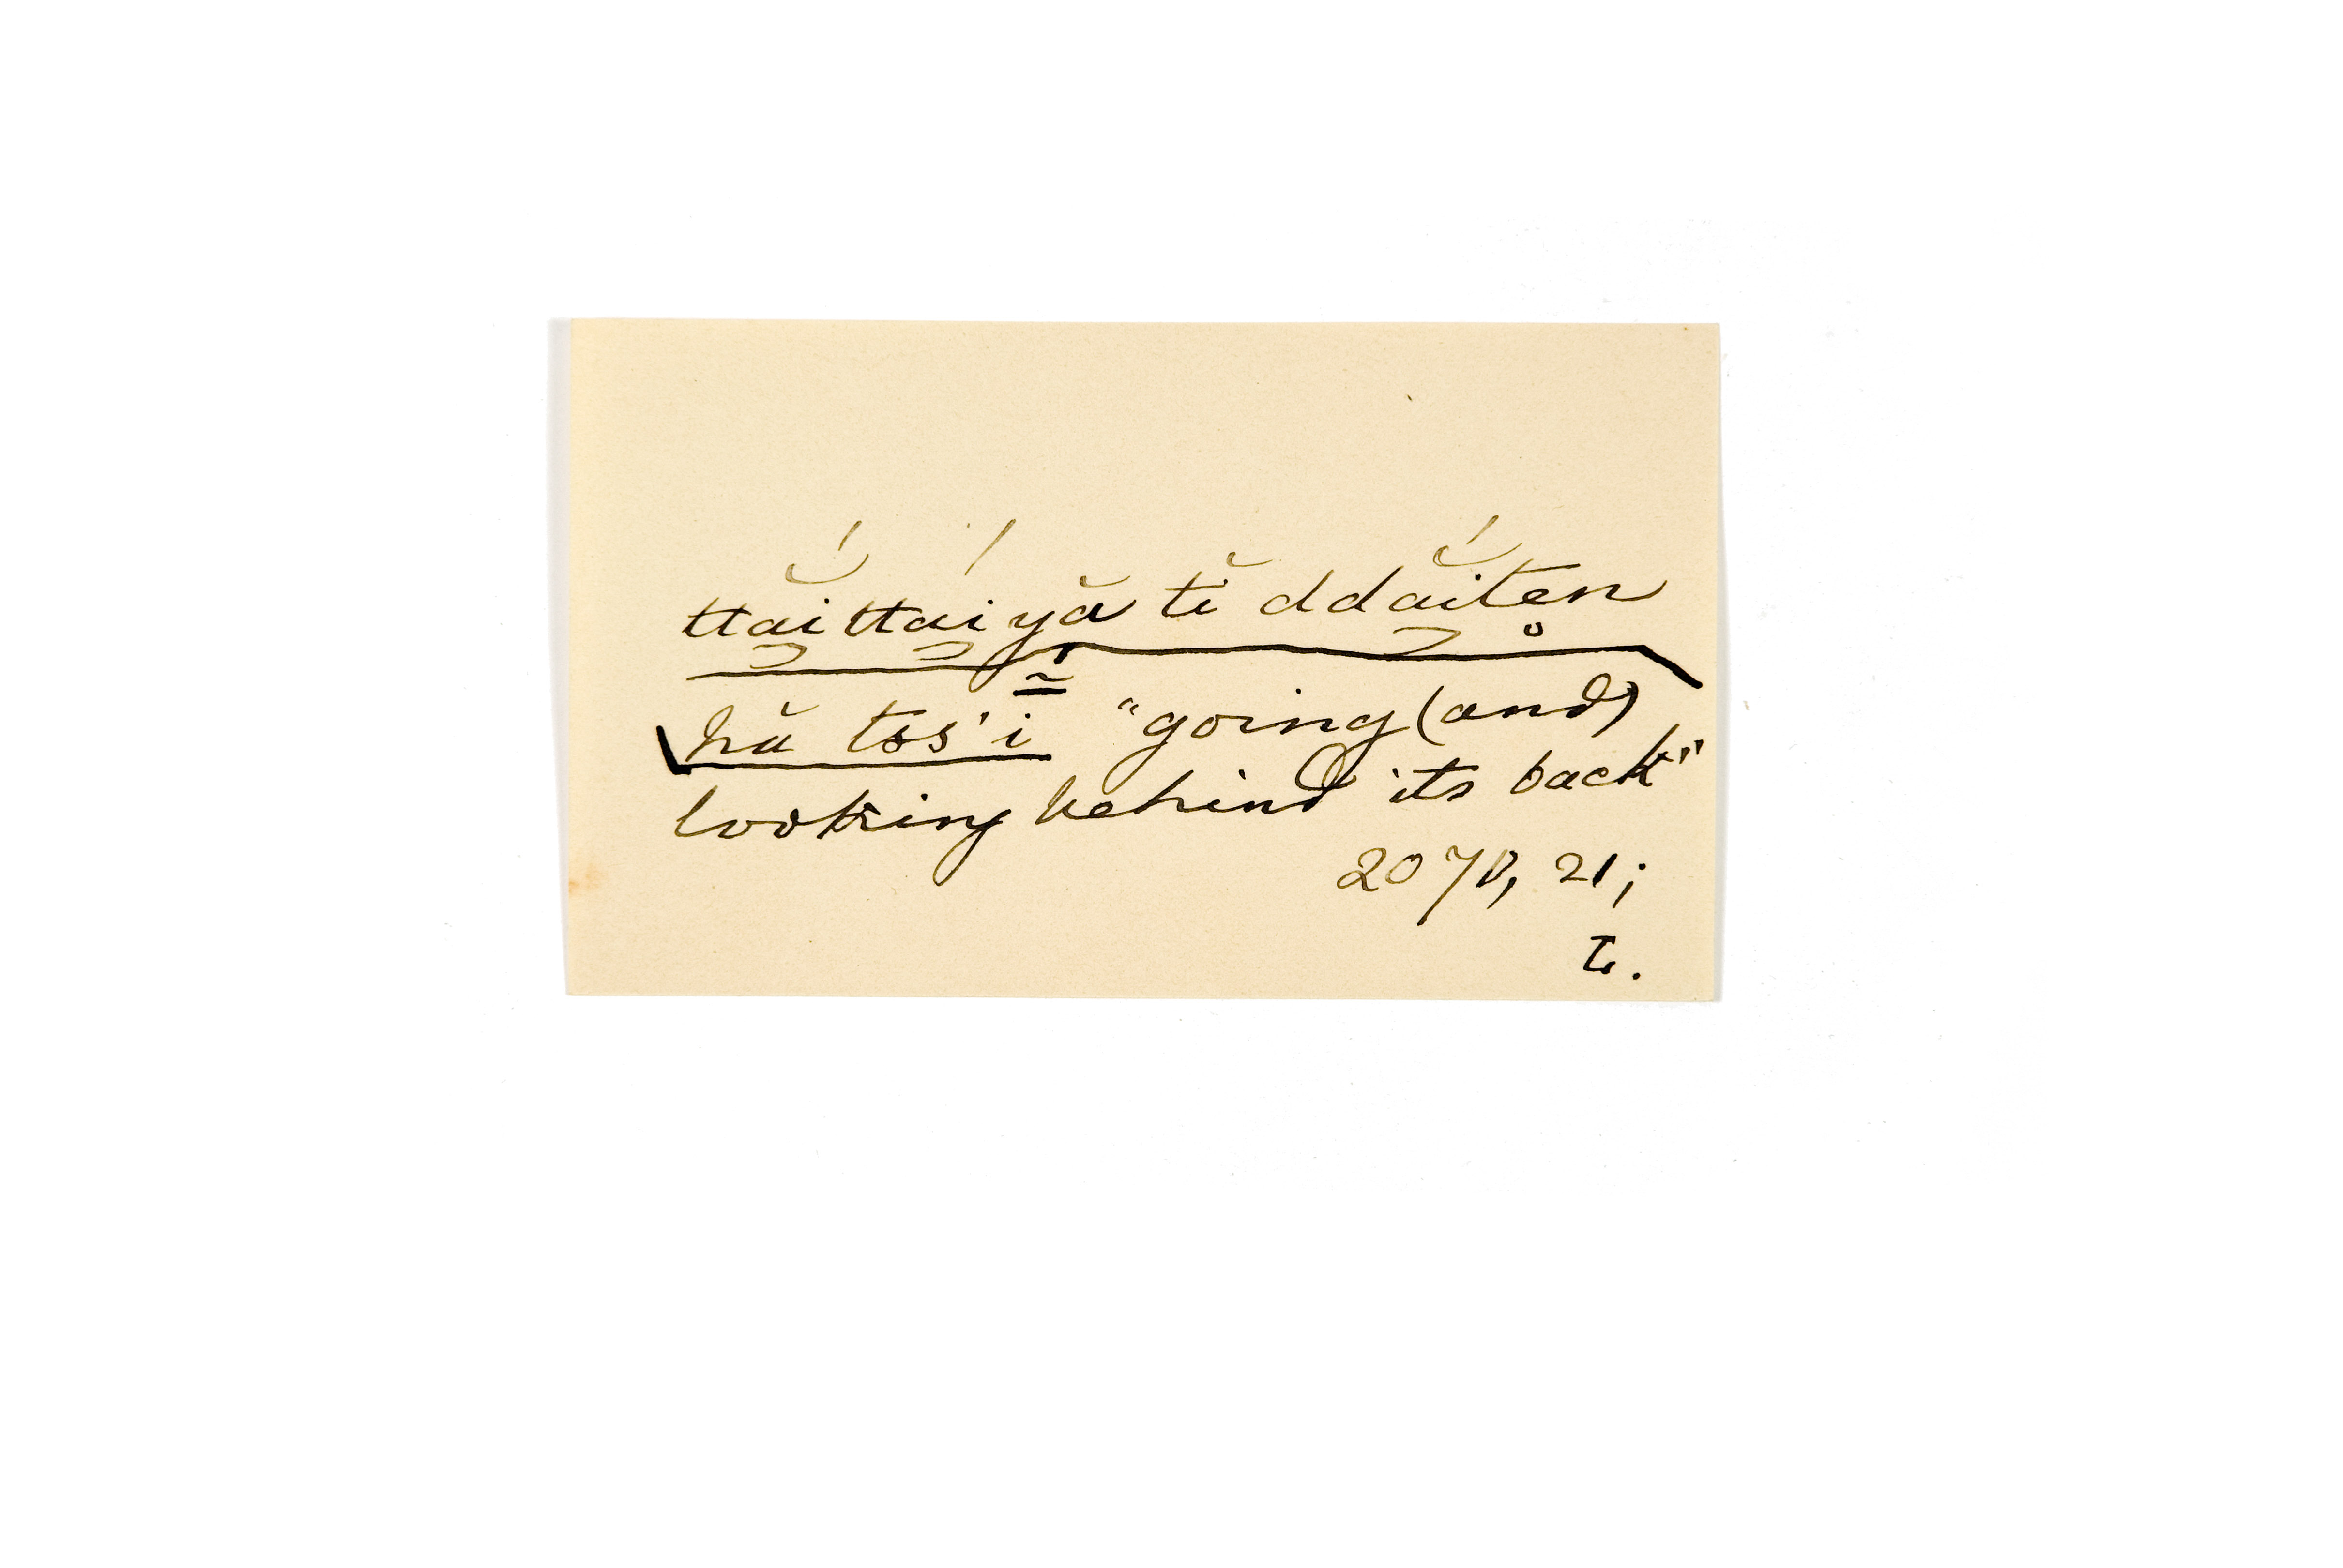 ttắĭttáĭyă tĭ ddắĭten
hă tss'ĩ "going (and)
looking behind its back"
2070, 21;